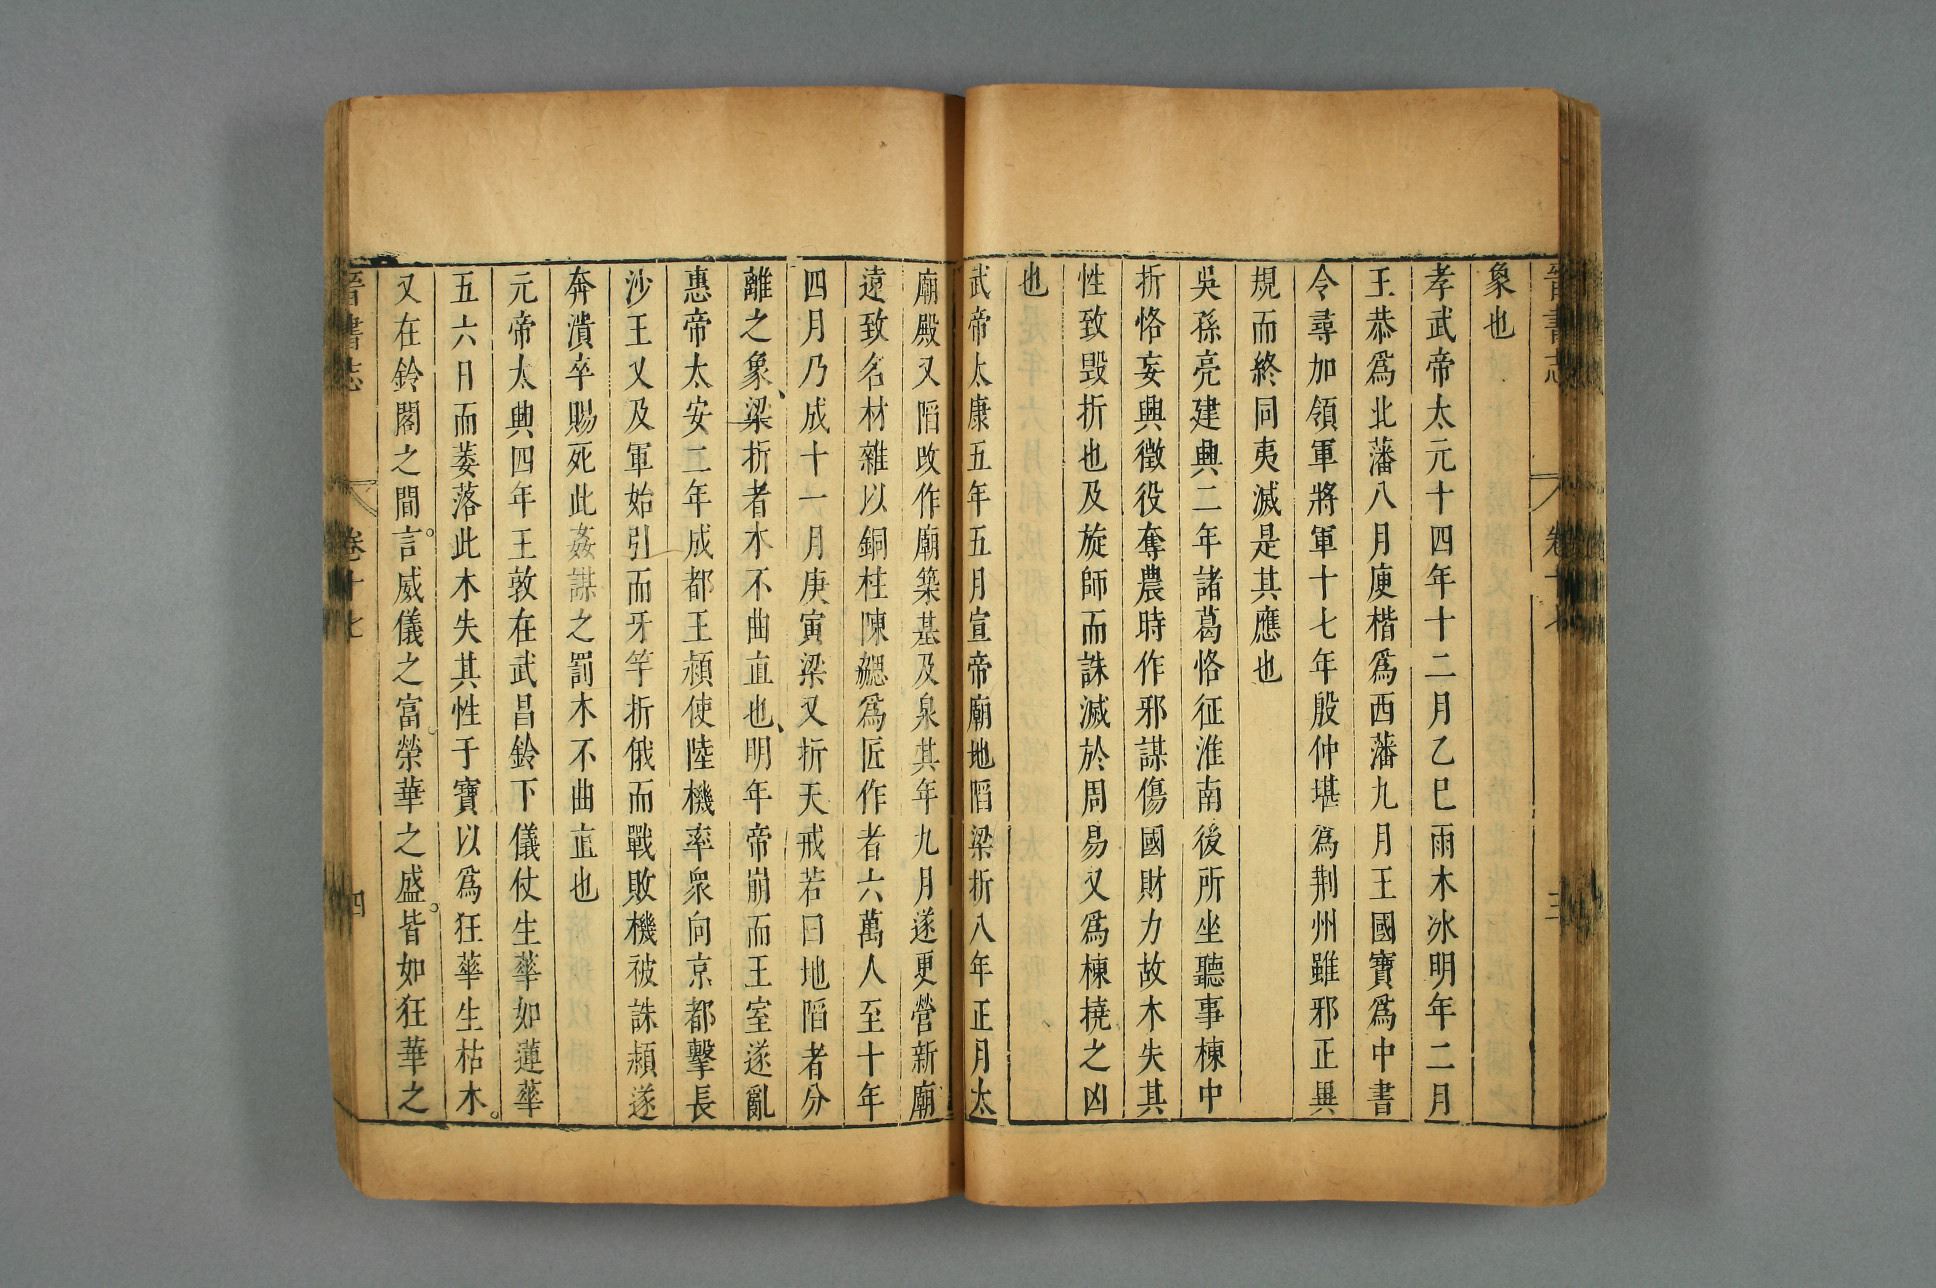 晉書志 卷十七 三
象也
孝武帝太元十四年十二月乙巳雨木冰明年二月
王恭爲北藩八月庾楷爲西藩九月王國寶爲中書
令尋加領軍將軍十七年殷仲堪爲荆州雖邪正異
規而終同夷滅是其應也
吳孫亮建興二年諸葛恪征淮南後所坐聽事棟中
折恪妄興徵役奪農時作邪謀傷國財力故木失其
性致毀折也及旋師而誅滅於周易又爲棟撓之凶
也
武帝太康五年五月宣帝廟地陷梁折八年正月太
廟殿又陷改作廟築基及泉其年九月遂更營新廟
遠致名材雜以銅柱陳勰爲匠作者六萬人至十年
四月乃成十一月庚寅梁又折天戒若曰地陷者分
離之象梁折者木不曲直也明年帝崩而王室遂亂
惠帝太安二年成都王頴使陸機率衆向京都擊長
沙王乂及軍始引而牙竿折俄而戰敗機被誅頴遂
奔潰卒賜死此姦謀之罰木不曲直也
元帝太興四年王敦在武昌鈴下儀仗生華如蓮華
五六日而萎落此木失其性于寶以爲狂華生枯木
又在鈴閣之間言威儀之富榮華之盛皆如狂華之
晉書志 卷十七 四